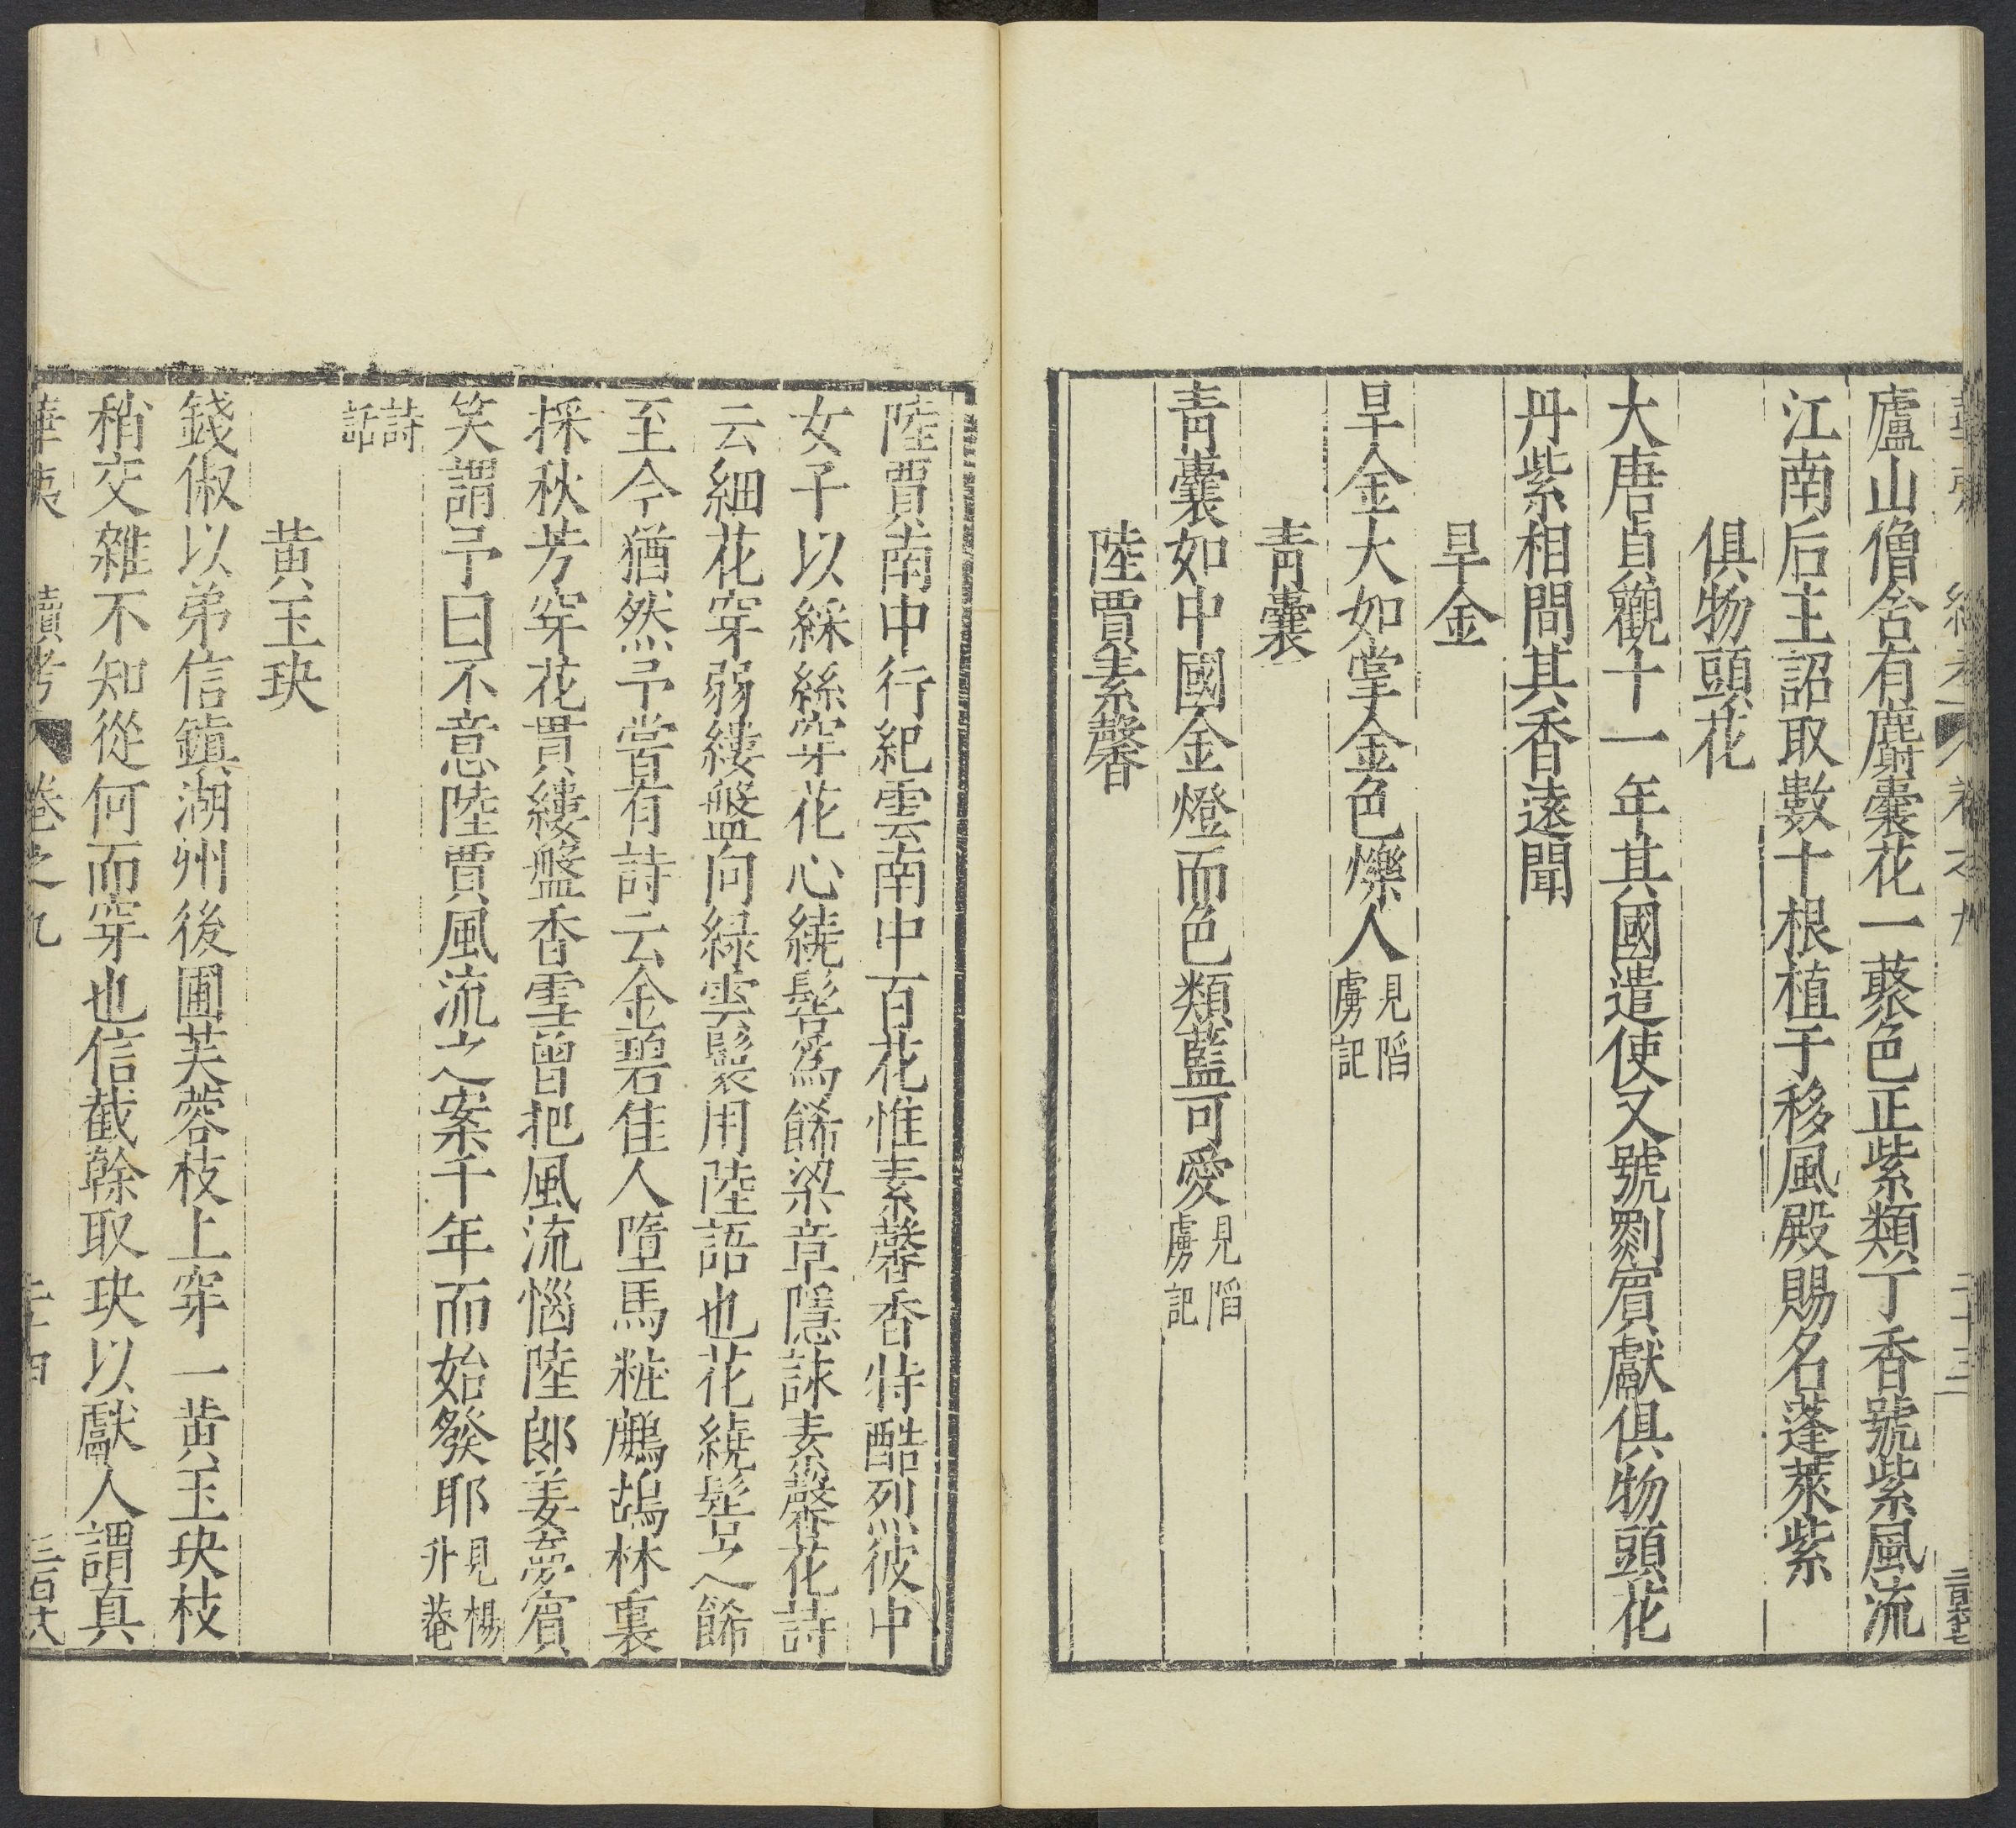 廬山僧舍有麝囊花一藂色正紫類丁香號紫風流
江南后主詔取數十根植于移風殿賜名蓬萊紫
俱物頭花
大唐貞觀十一年其國遣使又號罽賓獻俱物頭花
丹紫相間其香遠聞
旱金
旱金大如掌金色爍人見陷虜記
青囊
青囊如中國金燈而色類藍可愛見陷虜記
陸賈素馨
陸賈南中行紀雲南中百花惟素馨香特酷烈彼中
女子以綵絲穿花心繞髻爲餙梁章隱詠素馨花詩
云細花穿弱縷盤向緑雲鬟用陸語也花繞髻之餙
至今猶然予嘗有詩云金碧佳人墮馬粧鷓鴣林裏
採秋芳穿花貫縷盤香雪曾把風流惱陸郎姜夢賓
笑謂予曰不意陸賈風流之案千年而始發耶見楊升菴
詩話
黄玉玦
錢俶以弟信鎮湖州後圃芙蓉枝上穿一黄玉玦枝
稍交雜不知從何而穿也信截榦取玦以獻人謂真
華夷 續考 卷之九 二十四